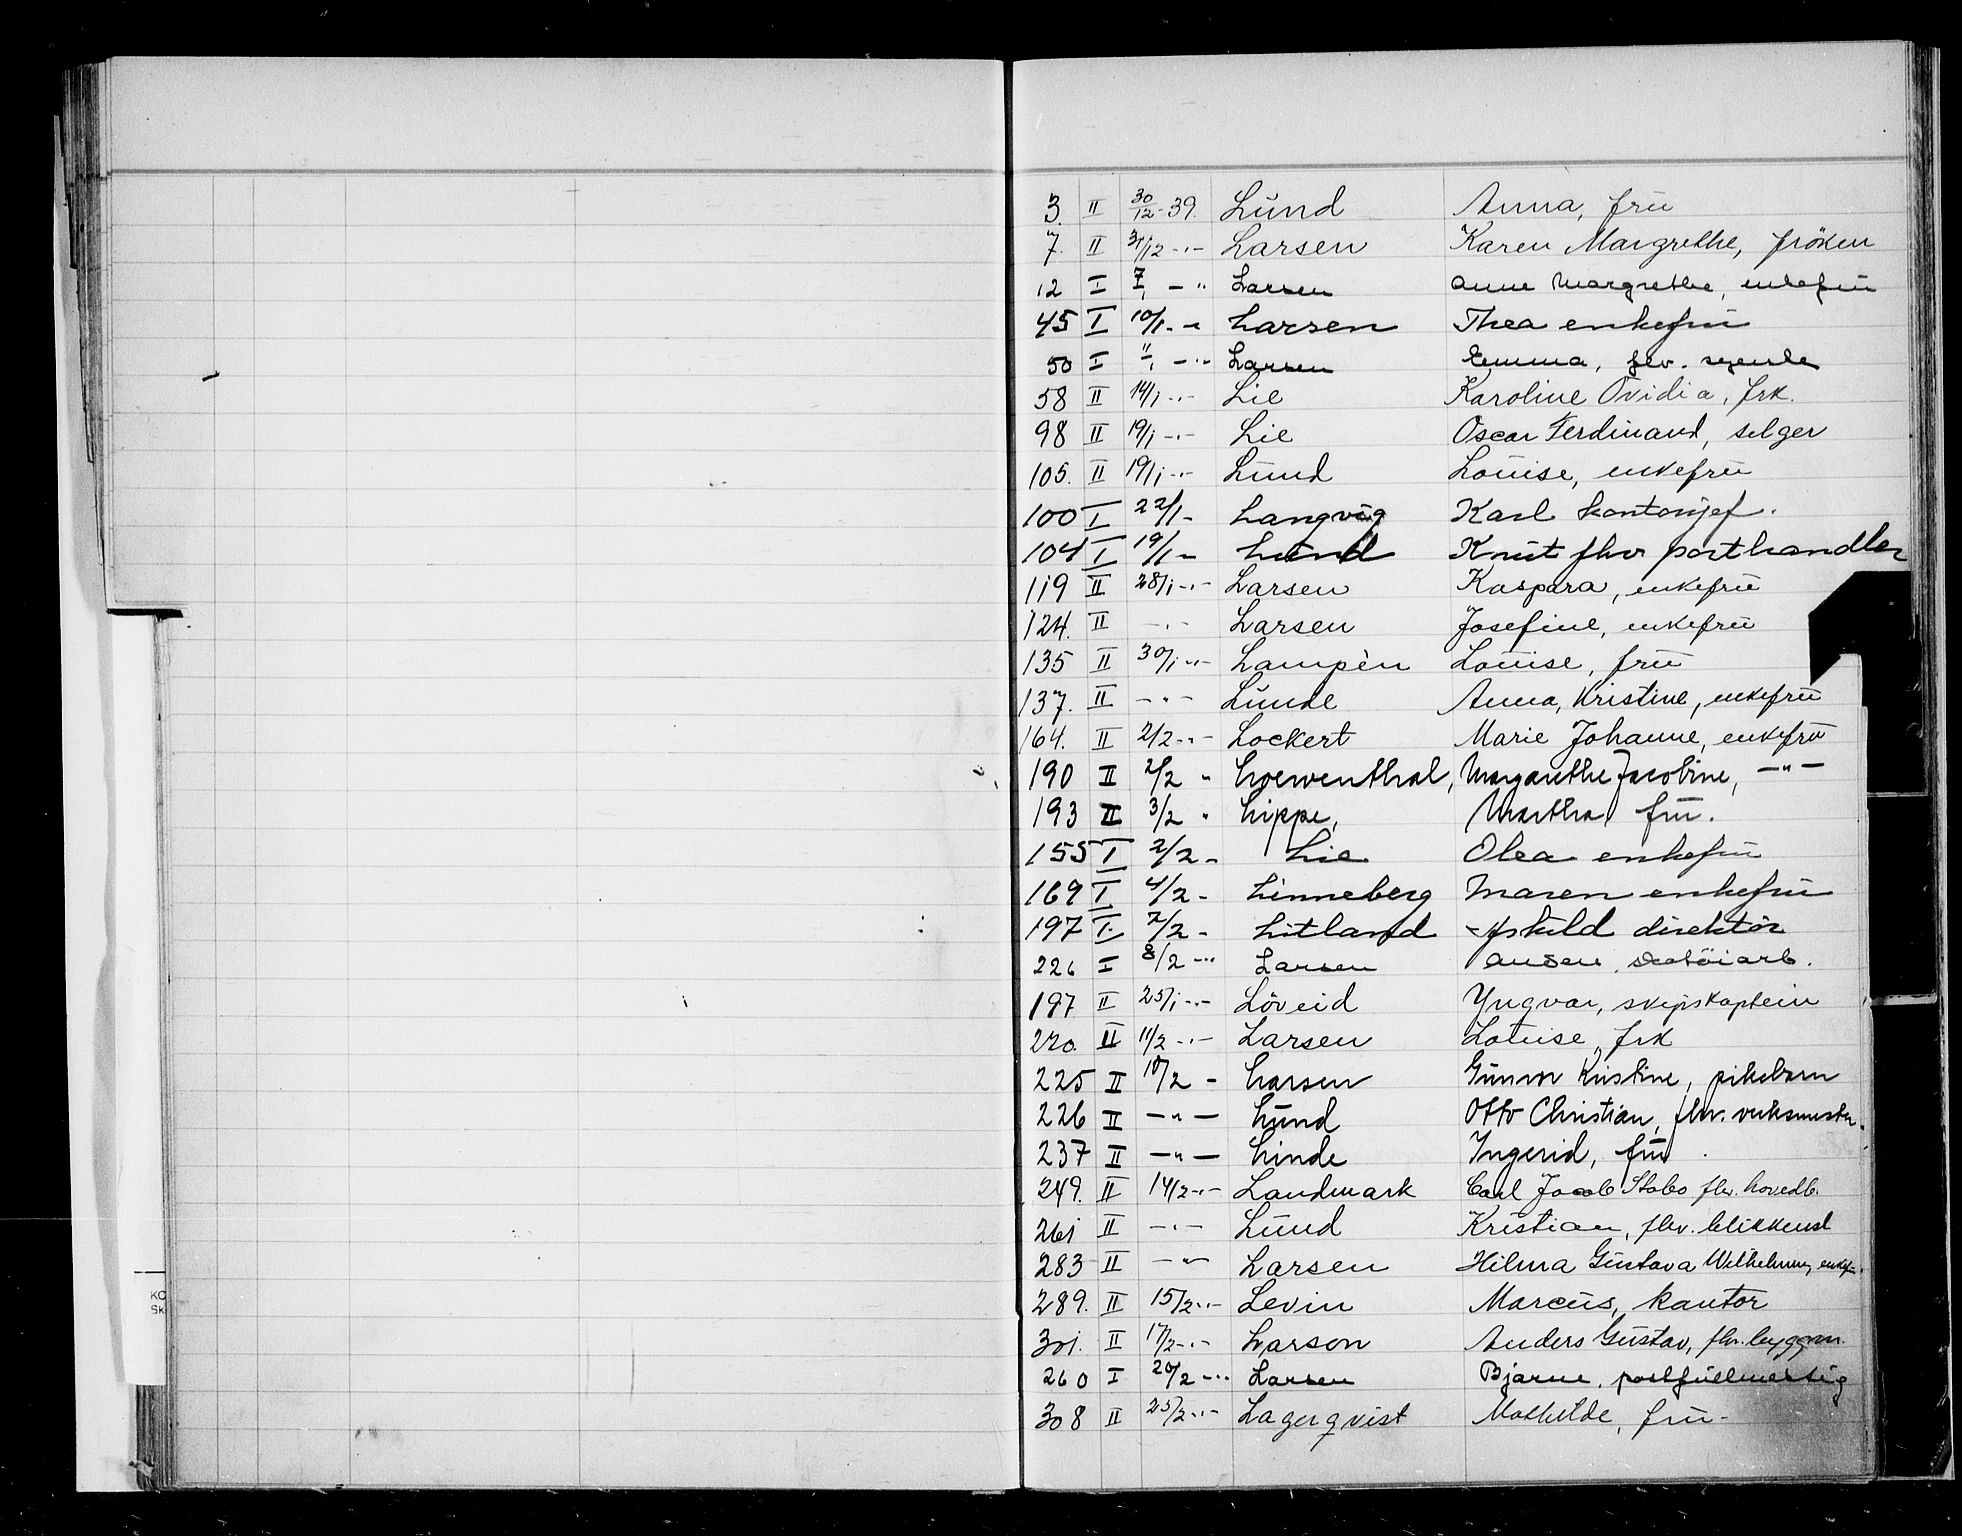 3. II 30/12-39. Lund Anna, frü
7. II 31/12 -"- Larsen Karen Margrethe, fröken
12 I 7/1 -" Larsen Anne Margrethe, enkefrü
45 I 10/1 - " Larsen Thea enkefrü
50 I 11/1 -" Larsen Emma, fhv. syerske
58 II 14/1 -"- Lie Karoline Ovidia, frk.
98 II 19/1 -"- Lie Oscar Ferdinand, selger
105. II 19/1 -"- Lund Louise, enkefrü
100 I 22/1 - Langvig Karl kontorsjef.
104 I 19/1 - Lund Knut fhv porthandler
119 II 28/1 -"- Larsen Kaspara, enkefrü
124. II -"- Larsen Josefine, enkefrü
135 II 30/1 -"- Lampèn Louise, frü
137. II -"- Lunde Anna, Kristine, enkefrü
164. II 2/2 -"- Lockert Marie Johanne, enkefrü
190 II 2/2 " Loewenthal, Margarethe Jacobine, -"-
193 II 3/2 " Lippe, Martha frü.
155 I 2/2 - Lie Olea enkefrü
169 I 4/2 - Linneberg Maren enkefrü
197 I 7/2 - Litland Askild direktör
226 I 8/2 -" Larsen skotöiarb.
197 II 25/1 -"- Löveid Yngvar, skipskaptein
220. II 11/2 -"- Larsen Louise, frk
225 II 10/2 - Larsen Gunvor Kristine, pikebarn
226 II -"- Lund Otto Christian, fhv. verksmester.
237 II -"- Linde Ingerid, frü
249. II 14/2 -"- Landmark Carl Jacob Stabo fhv. hovedb.
261 II -"- Lund Kristian, fhv. blikkensl
283 II -"- Larsen Hilma Gustava Wilhelmine, enkefr.
289. II 15/2 -"- Levin Marcus, kantor
301. II 17/2 -"- Larson Anders Gustav, fhv. byggm.
260 I 20/2 -" Larsen Bjarne, postfullmektig
308 II 25/2 -"- Lagerqvist Mathilde, frü-
KO
Sk